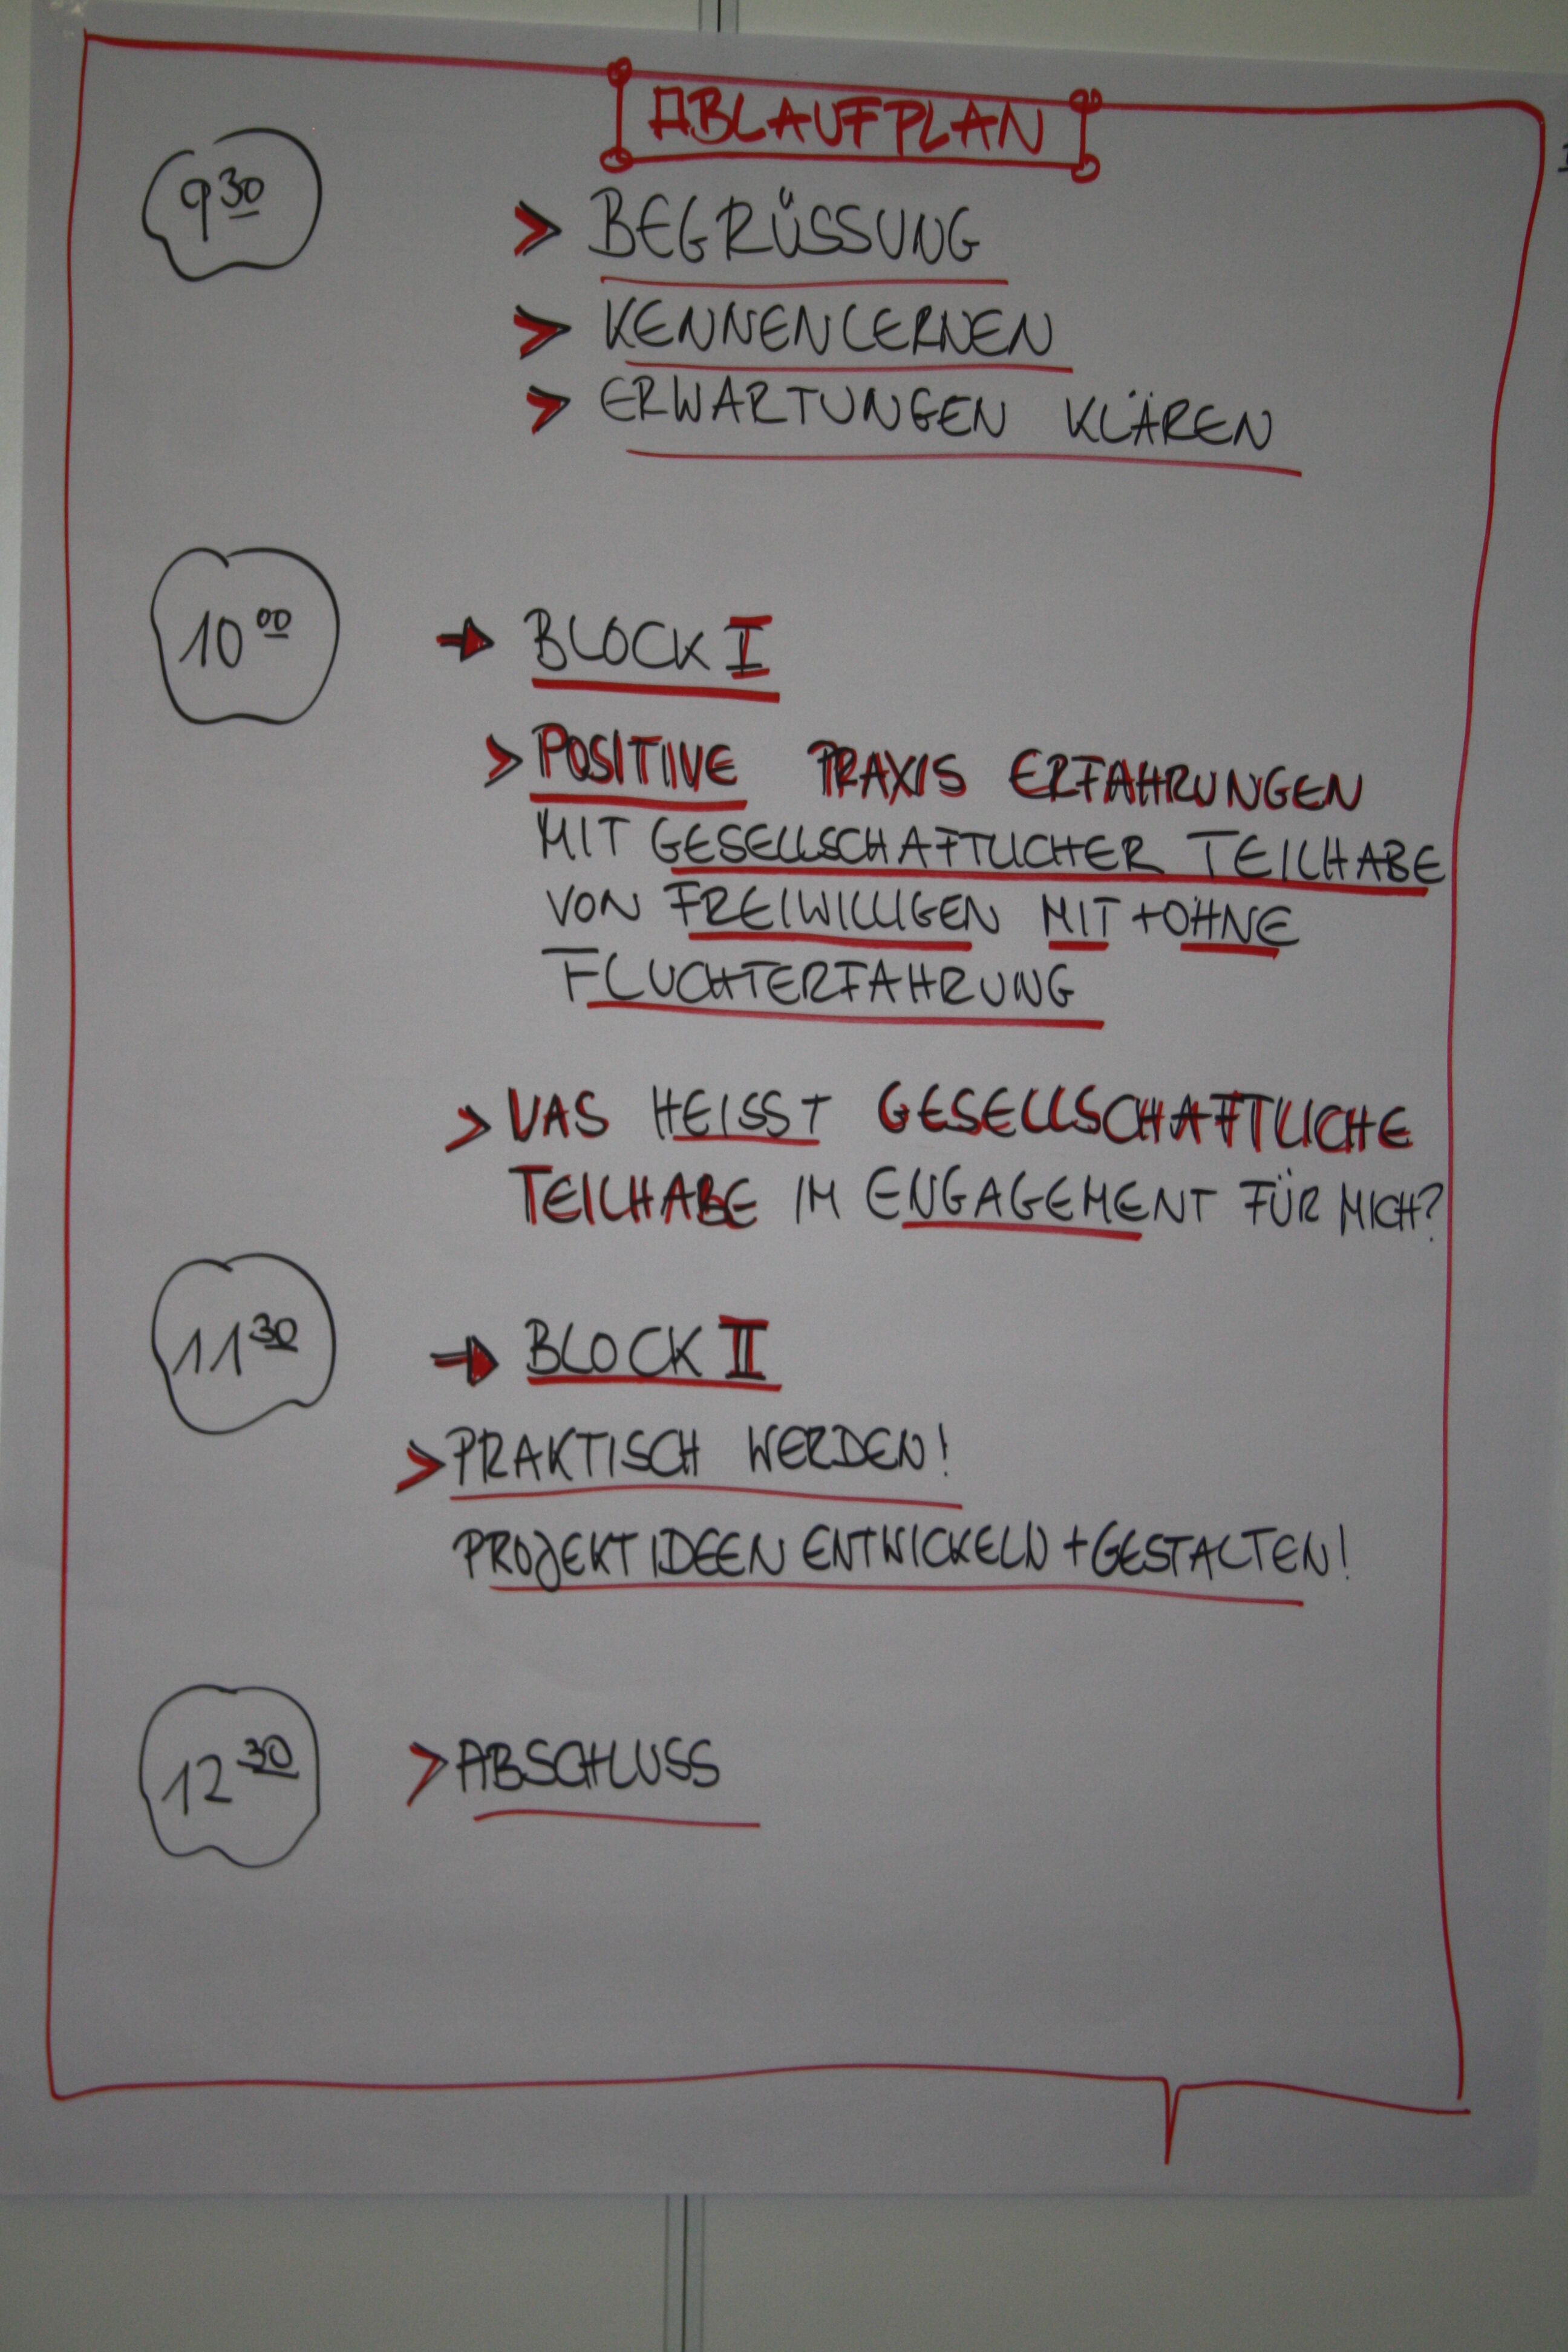 ABLAUFPLAN
9 30
> BEGRÜSSUNG
> KENNENLERNEN
> ERWARTUNGEN KLÄREN
10 00
→ BLOCK I
> POSITIVE PRAXIS ERFAHRUNGEN
MIT GESELLSCHAFTLICHER TEILHABE
VON FREIWILLIGEN MIT + OHNE
FLUCHTERFAHRUNG
> WAS HEISST GESELLSCHAFTLICHE
TEILHABE IM ENGAGEMENT FÜR MICH?
11 30
→ BLOCK II
> PRAKTISCH WERDEN!
PROJEKTIDEEN ENTWICKELN + GESTALTEN!
12 30
> ABSCHLUSS